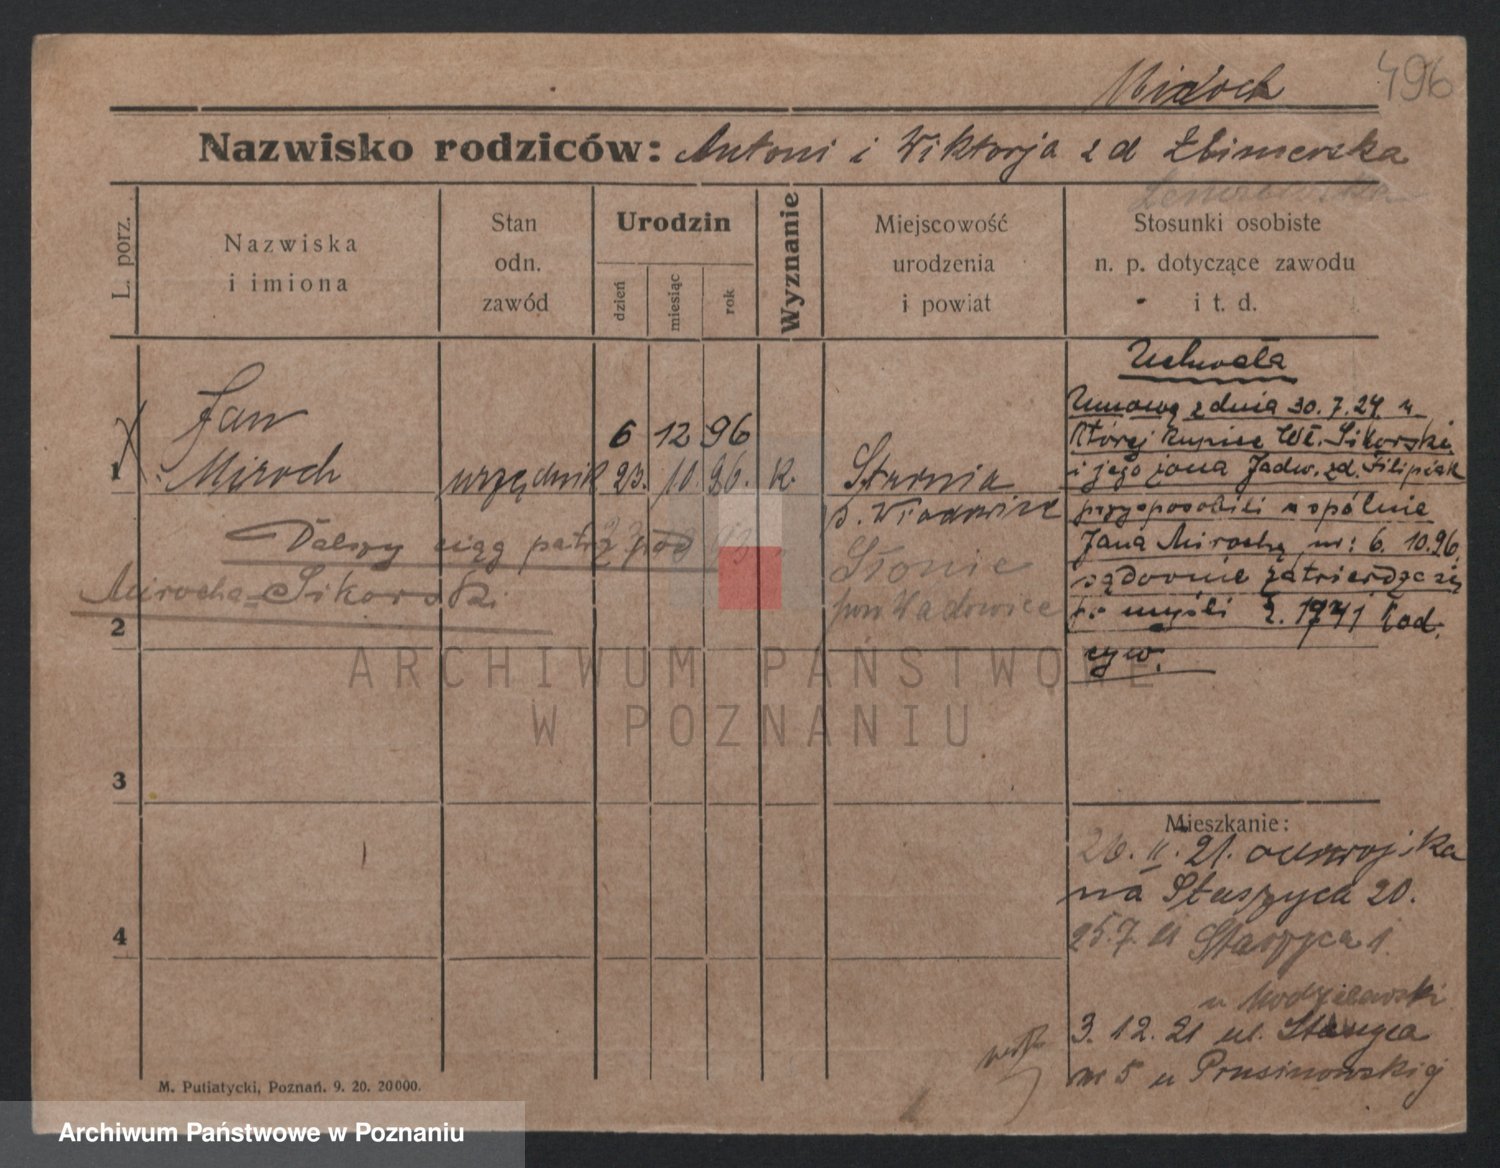 Miroch 496
Nazwisko rodziców: Antoni i Wiktorja z d Żbimerska
L. porz.
Nazwiska
i imiona
Stan
odn.
zawód
Urodzin
dzień
miesiąc
rok
Wyznanie
Miejscowość
urodzenia
i powiat
Stosunki osobiste
n. p. dotyczące zawodu
i t. d.
Jan
6 12 96
1 Miroch urzędnik 23. 10. 96. K.
Dalszy ciąg patrz pod
Mirocha=Sikorski
p. Wadowice
Słonie
pow Wadowice
Uchwała
Umową z dnia 30.7.24 w
której kupiec Wł. Sikorski
i jego żona Jadw. zd. Filipiak
przysposobili wspólnie
Jana Mirocha, ur: 6. 10.96.
sądownie zatwierdza się
po myśli § 1741 kod.
cyw.
2
3
4
Mieszkanie:
26. II. 21.
na Staszyca 20.
25.7.21 Staszyca 1.
3. 12. 21 ul. Staszyca
nr 5 u Prusinowskiej
M. Putiatycki, Poznań. 9. 20. 20000.
ARCHIWUM PAŃSTWOWE
W POZNANIU
Archiwum Państwowe w Poznaniu